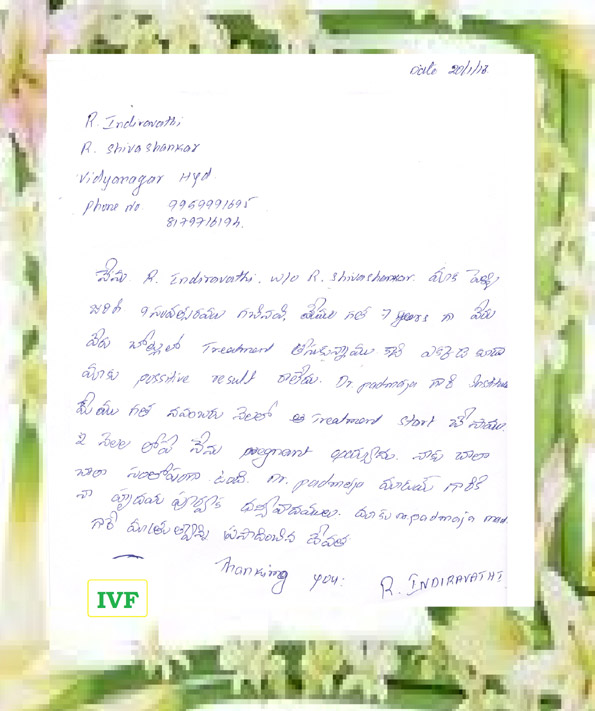 Date 20/1/18
R. Indiravathi
R. Shivashankar
Vidyanagar Hyd
Phone No 9969991695
8179716194.
నేను R. Indiravathi. w/o R. Shivashankar. మాకి పెళ్ళి
జరిగి 9 సంవత్సరములు గడిచినవి. మేము గత 7 years గా వేరు
వేరు హాస్పిటల్లో Treatment తీసుకున్నాము కానీ ఎక్కడ కూడా
మాకు possitive result రాలేదు. Dr. padmaja గారి Institus
మేము గత నవంబరు నెలలో Treatment start చేసాము
2 నెలల లోపే నేను pregnant అయ్యాను. నాకు చాలా
చాలా సంతోషంగా ఉంది. Dr. padmaja మేడమ్ గారికి
నా హృదయ పూర్వక ధన్యవాదములు. మాకు padmaja mad.
గారి మాతృత్వాన్ని ప్రసాదించిన దేవత
Thanking you:
R. INDIRAVATHI.
IVF